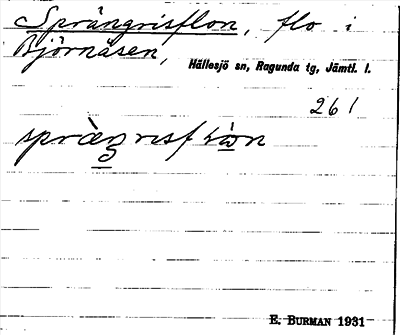 Sprängrisflon, flo i
Björnåsen, Hällesjö sn, Ragunda tg, Jämtl. l.
261
E. BURMAN 1931